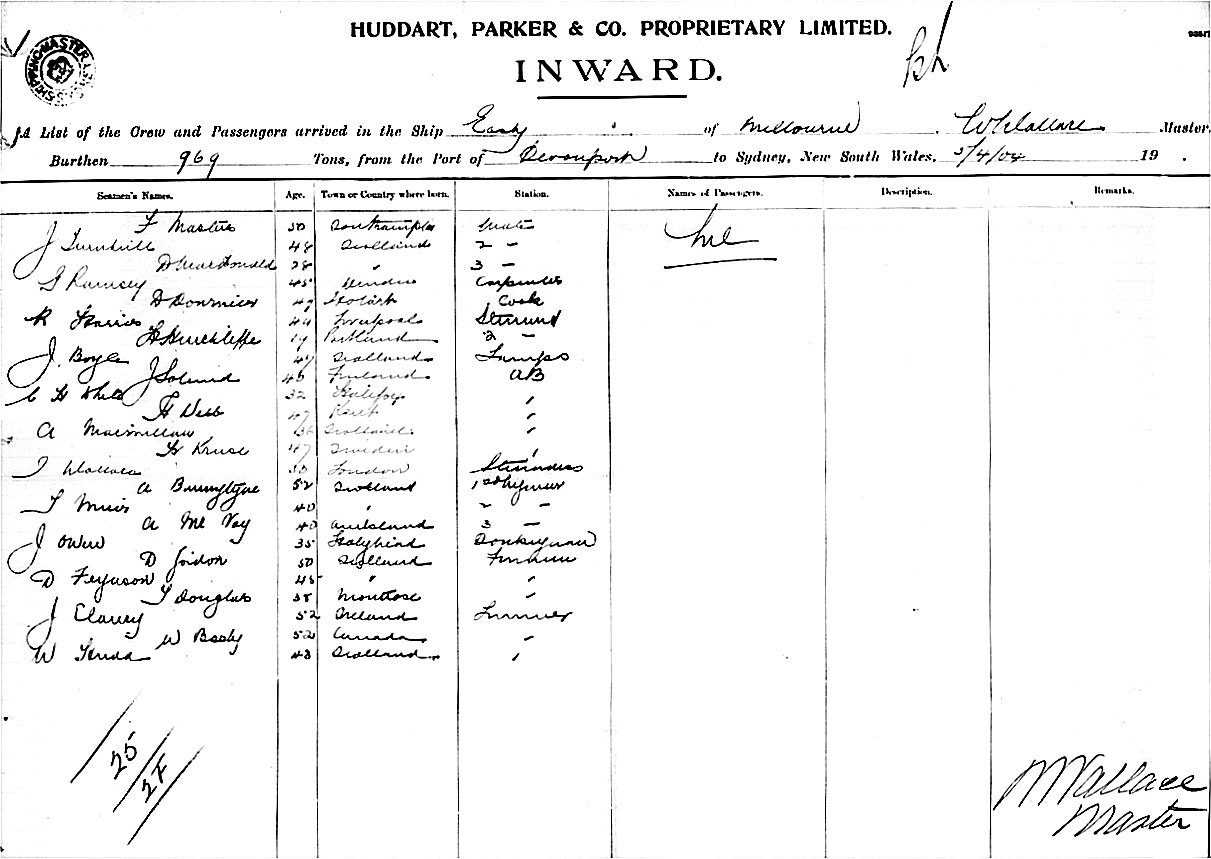 HUDDART, PARKER & CO. PROPRIETARY LIMITED.
INWARD.
A List of the Crew and Passengers arrived in the Ship of Melbourne W Wallace Master
Burthen 969 Tons, from the Port of Devonport to Sydney, New South Wales, 5/4/04 19 .
Seamen's Names. Age. Town or Country where born. Station. Names of Passengers. Description. Remarks.
F Masters 50 Southampton Mate
J Turnbull 48 Scotland 2 - Nil
D MacDonald 28 " 3 -
Ramsey 45 Dundee Carpenter
D 49 Hobart Cook
R Harris 44 Liverpool Steward
H Hinchliffe 19 Portland 2 -
J. Boyle 47 Scotland Lamps
J 46 Finland AB
C H White 32 Halifax "
H Webb 47 Kent "
A Macmillan 36 Scotland "
H Kruse 47 Sweden "
J Wallace 50 London
A 52 Scotland 1st
T Muir 40 " 2 -
A Mc Vay 40 3 -
J Owen 35 Holyhead Donkeyman
D Gordon 50 Scotland Fireman
D Ferguson 45 " "
T Douglas 38 Montrose "
J Clancy 52 Ireland Trimmer
W 52 Canada "
W 43 Scotland "
25
24
W Wallace
Master